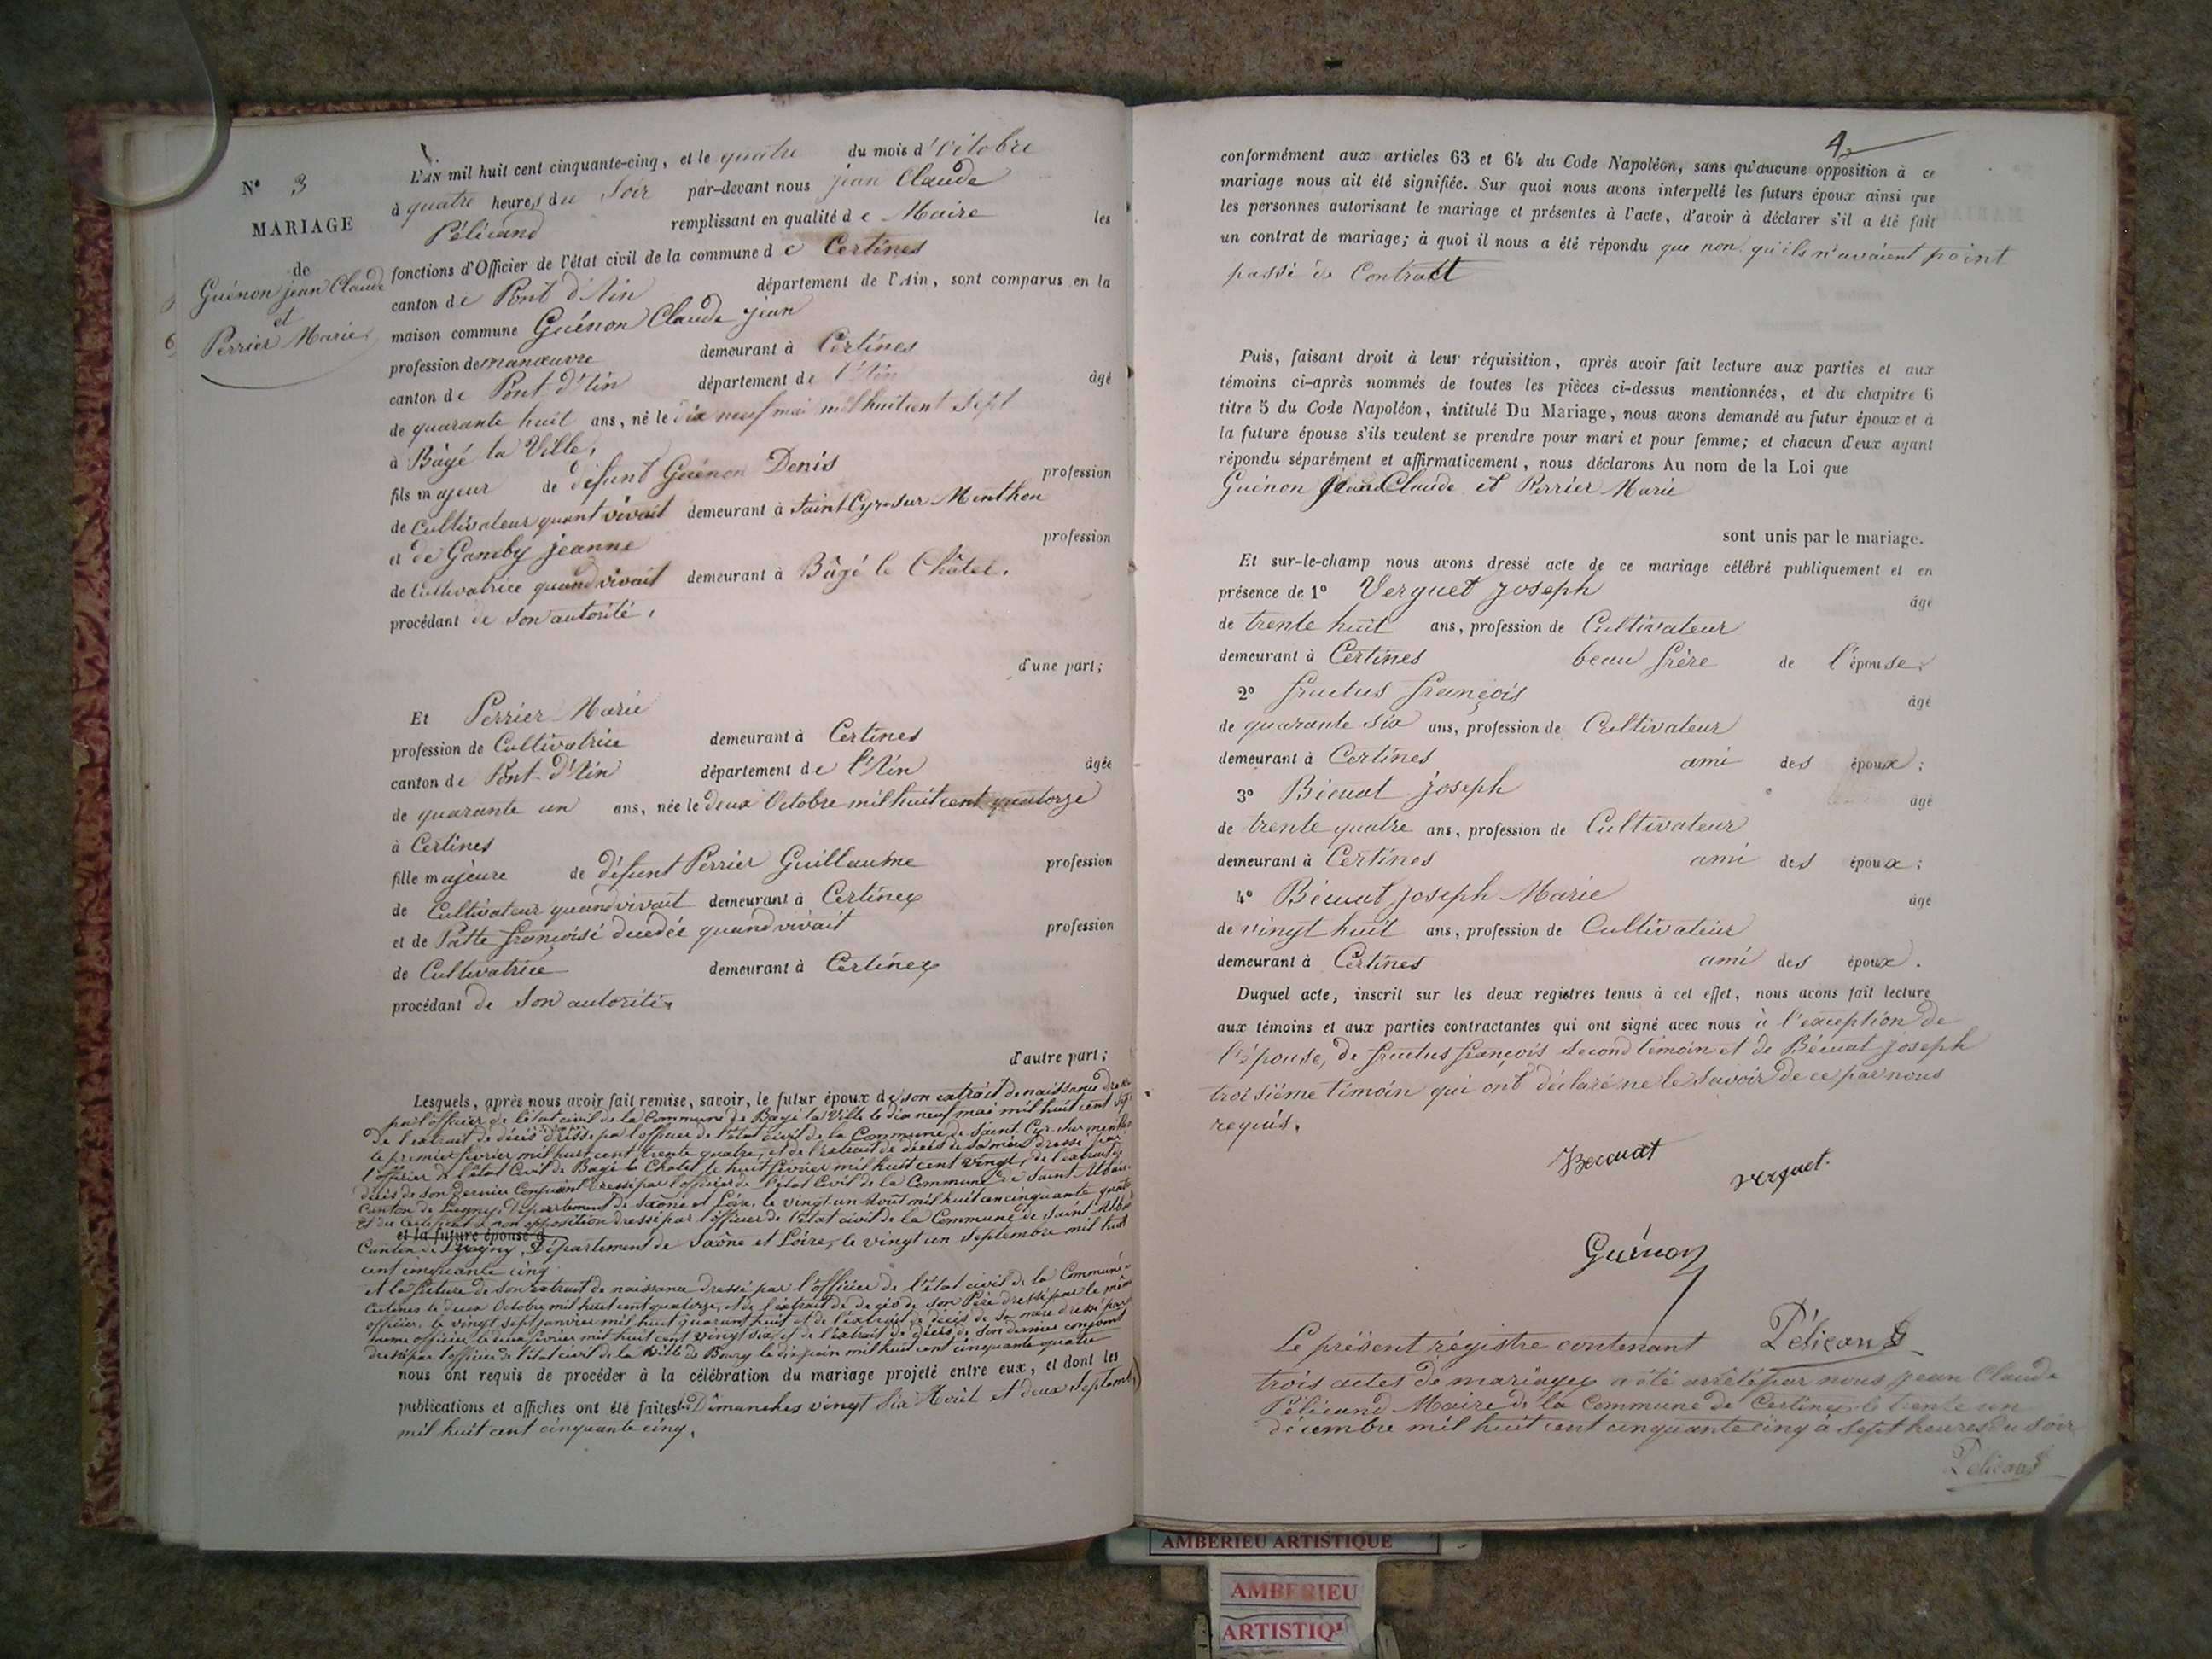 N° 3
MARIAGE
de
Guénon jean Claude
et
Perrier Marie
L'AN mil huit cent cinquante-cinq, et le quatre du mois d'Octobre
à quatre heures du Soir par-devant nous jean Claude
Pélicand remplissant en qualité de Maire les
fonctions d'Officier de l'état civil de la commune de Certines
canton de Pont d'Ain département de l'Ain, sont comparus en la
maison commune Guénon Claude jean
profession de manœuvre demeurant à Certines
canton de Pont d'Ain département de l'Ain âgé
de quarante huit ans, né le dix neuf mai mil huit cent sept
à Bâgé la Ville,
fils majeur de défunt Guénon Denis profession
de Cultivateur quant vivait demeurant à Saint Cyr sur Menthon
et de Gamby jeanne profession
de Cultivatrice quand vivait demeurant à Bâgé le Châtel.
procédant de son autorité,
d'une part;
Et Perrier Marie
profession de Cultivatrice demeurant à Certines
canton de Pont-d'Ain département de l'Ain âgée
de quarante un ans, née le deux Octobre mil huit cent quatorze
à Certines
fille majeure de défunt Perrier Guillaume profession
de Cultivateur quand vivait demeurant à Certines
et de Patte françoise décédée quand vivait profession
de Cultivatrice demeurant à Certines
procédant de son autorité,
d'autre part;
Lesquels, après nous avoir fait remise, savoir, le futur époux de son extrait de naissance
par l'officier de l'état civil de la Commune de Bagé la Ville le dix neuf mai mil huit cent sept
de l'extrait de décès dressé par l'officier de l'état civil de la Commune de Saint-Cyr-sur menthon
le premier février mil huit cent trente quatre, et de l'extrait de décès de sa mère dressé par
l'officier de l'état Civil de Bagé le Chatel le huit février mil huit cent vingt, de l'extrait de
décès de son dernier Conjoint dressé par l'officier de l'état Civil de la Commune de Saint Albain
Canton de Lugny, Département de Saône et Loire, le vingt un Août mil huit cent cinquante quatre
et du certificat de non opposition dressé par l'officier de l'état civil de la Commune de Saint-Albain
et la future épouse d
Canton de Lugny, Département de Saône et Loire, le vingt un Septembre mil huit
cent cinquante cinq
et la future de son extrait de naissance dressé par l'officier de l'état civil de la Commune
Certines le deux Octobre mil huit cent quatorze, et de l'extrait de décès de son Père dressé par le même
officier, le vingt sept janvier mil huit quarante huit et de l'extrait de décès de sa mère dressé par
même officier le deux février mil huit cent vingt six, et de l'extrait de décès de son dernier conjoint
dressé par l'officier de l'état civil de la Ville de Bourg le dix juin mil huit cent cinquante quatre
nous ont requis de procéder à la célébration du mariage projeté entre eux, et dont les
publications et affiches ont été faites les Dimanches vingt Six Août et deux Septembre
mil huit cent cinquante cinq.
4
conformément aux articles 63 et 64 du Code Napoléon, sans qu'aucune opposition à ce
mariage nous ait été signifiée. Sur quoi nous avons interpellé les futurs époux ainsi que
les personnes autorisant le mariage et présentes à l'acte, d'avoir à déclarer s'il a été fait
un contrat de mariage; à quoi il nous a été répondu que non qu'ils n'avaient point
passé de Contract
Puis, faisant droit à leur réquisition, après avoir fait lecture aux parties et aux
témoins ci-après nommés de toutes les pièces ci-dessus mentionnées, et du chapitre 6
titre 5 du Code Napoléon, intitulé Du Mariage, nous avons demandé au futur époux et à
la future épouse s'ils veulent se prendre pour mari et pour femme; et chacun d'eux ayant
répondu séparément et affirmativement, nous déclarons Au nom de la Loi que
Guénon jean Claude et Perrier Marie
sont unis par le mariage.
Et sur-le-champ nous avons dressé acte de ce mariage célébré publiquement et en
présence de 1° Verguet Joseph âgé
de trente huit ans, profession de Cultivateur
demeurant à Certines beau frère de l'épouse.
2° fructus françois âgé
de quarante six ans, profession de Cultivateur
demeurant à Certines ami des époux;
3° Bécuat Joseph âgé
de trente quatre ans, profession de Cultivateur
demeurant à Certines ami des époux;
4° Bécuat Joseph Marie âgé
de vingt huit ans, profession de Cultivateur
demeurant à Certines ami des époux.
Duquel acte, inscrit sur les deux registres tenus à cet effet, nous avons fait lecture
aux témoins et aux parties contractantes qui ont signé avec nous à l'exception de
l'épouse, de fructus françois second témoin et de Bécuat Joseph
troisième témoin qui ont déclaré ne le savoir de ce par nous
requis.
Becuat
verguet.
Guénon
Pélicand
Le présent régistre contenant
trois actes de mariages a été arrêté par nous Jean Claude
Pélicand Maire de la Commune de Certines le trente un
décembre mil huit cent cinquante cinq à sept heures du soir
Pélicand
AMBERIEU ARTISTIQUE
AMBERIEU
ARTISTIQ